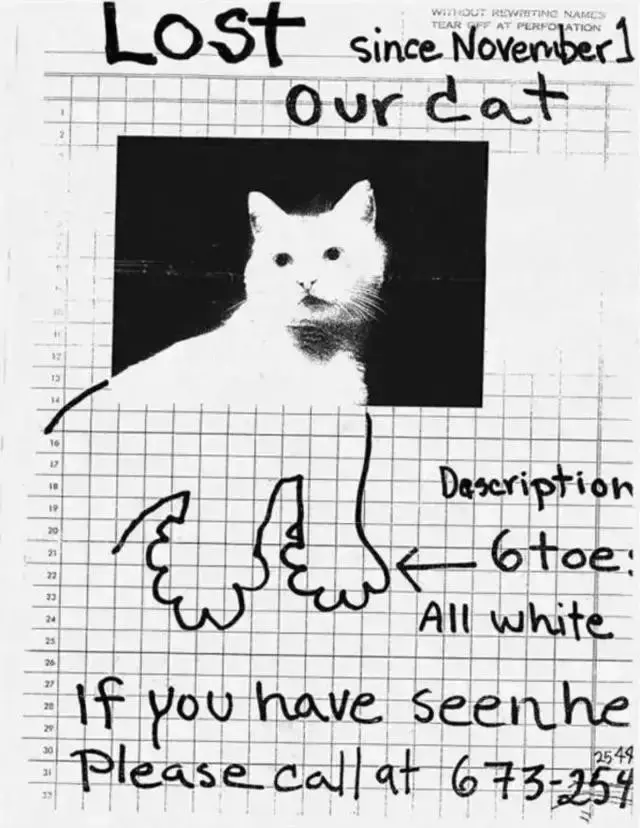 WITHOUT REWRITING NAMES
TEAR OFF AT PERFORATION
LOST
since November 1
our cat
1
2
12
13
14
16
17
18
Description
19
20
21
6 toe:
22
23
All white
24
25
26
27
28
If you have seen he
29
30
2544
31
Please call at 673-254
32